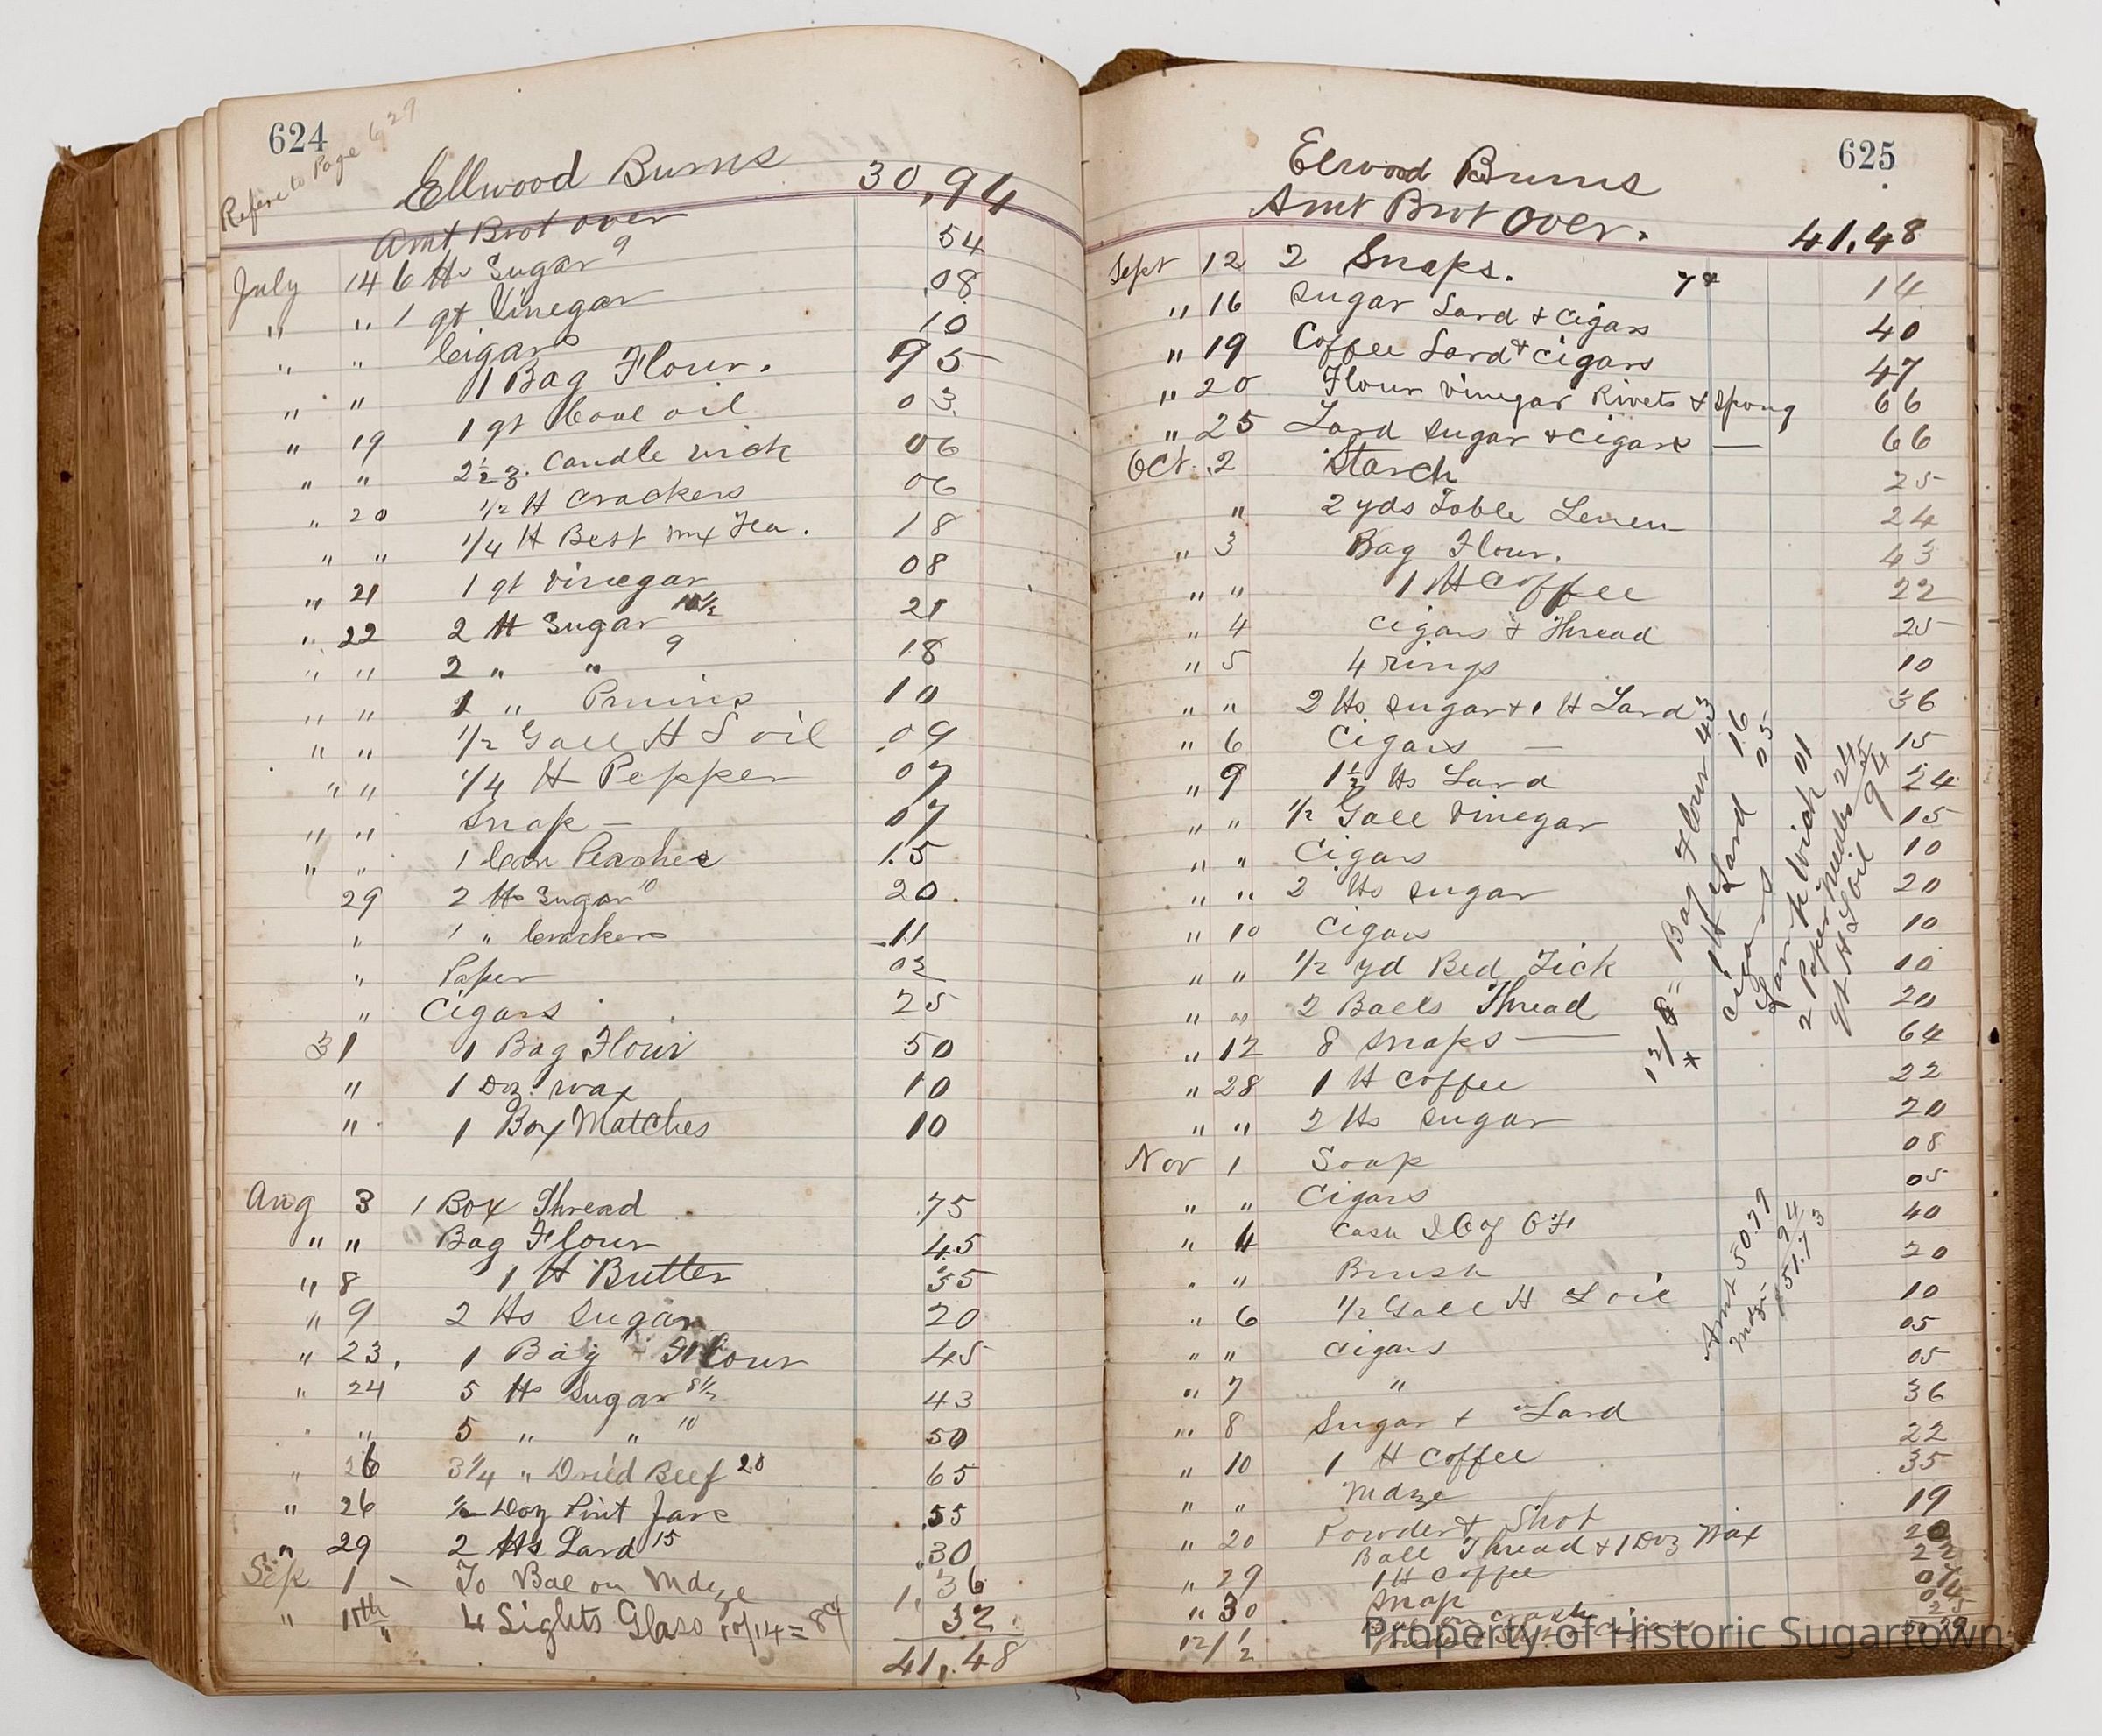 624
Refere to Page 629
Ellwood Burns 30,94
Amt Brot over
July 14 6 lbs Sugar 9 54
" " 1 qt Vinegar .08
" " Cigars 10
" " 1 Bag Flour. 95
" 19 1 qt Coal oil 03
" " 2½ z. Candle wick 06
" 20 ½ lb Crackers 06
" " ¼ lb Best mx Tea. 18
" 21 1 qt vinegar 08
" 22 2 lb Sugar 10½ 21
" " 2 " " 9 18
" " 1 " Pruins 10
" " ½ Gall H L oil .09
" " ¼ lb Pepper 07
" " Snap — 07
" " 1 Can Peaches 15
29 2 lbs Sugar 10 20.
" 1 " Crackers 11
" Paper 02
" Cigars 25
31 1 Bag Flour 50
" 1 Doz. wax 10
" 1 Box Matches 10
Aug 3 1 Box Thread .75
" " Bag Flour 45
" 8 1 lb Butter 35
" 9 2 lbs Sugar 20
" 23. 1 Bag Flour 45
" 24 5 lbs Sugar 8½ 43
" 5 " " 10 50
" 26 3¼ " Dried Beef 20 65
" 26 Doz Pint Jars 55
" 29 2 lbs Lard 15 .30
Sep 1 - To Bal on Mdze 1,36
" 11th 4 Lights Glass 10/14 = 8¢ 32
41,48
625
Elwood Burns
Amt Brot Over. 41,48
Sept 12 2 Snaps. 7¢ 14
" 16 Sugar Lard & Cigars 40
" 19 Coffee Lard & Cigars 47
" 20 Flour Vinegar Rivets & Spong 66
" 25 Lard Sugar & Cigars — 66
Oct. 2 Starch 25
" 2 yds Table Lenen 24
" 3 Bag Flour. 43
" " 1 lb Coffee 22
" 4 Cigars & Thread 25
" 5 4 rings 10
" " 2 lbs Sugar & 1 lb Lard 36
" 6 Cigars — 15
" 9 1½ lbs Lard 24
" " ½ Gall Vinegar 15
" " Cigars 10
" " 2 lbs Sugar 20
" 10 Cigars 10
" " ½ yd Bed Tick 10
" " 2 Balls Thread 20
" 12 8 Snaps — 64
" 28 1 lb Coffee 22
" " 2 lbs Sugar 20
Nov 1 Soap 08
" " Cigars 05
" 4 Cash I O of O F 40
" " Brush 20
" 6 ½ Gall H L oil 10
" " Cigars 05
" 7 " 05
" 8 Sugar & Lard 36
" 10 1 lb Coffee 22
" " Mdze 35
" 20 Powder & Shot 19
Ball Thread & 1 Doz Wax 20
" 29 1 lb Coffee 22
" 30 Snap
12/1
Bag Flour 43
1 lb Lard 16
Cigars 05
Lamp Wick 01
2 Paper Needles
qt H L Oil
94
Amt 50.79
Mdze 94
51.73
Property of Historic Sugartown